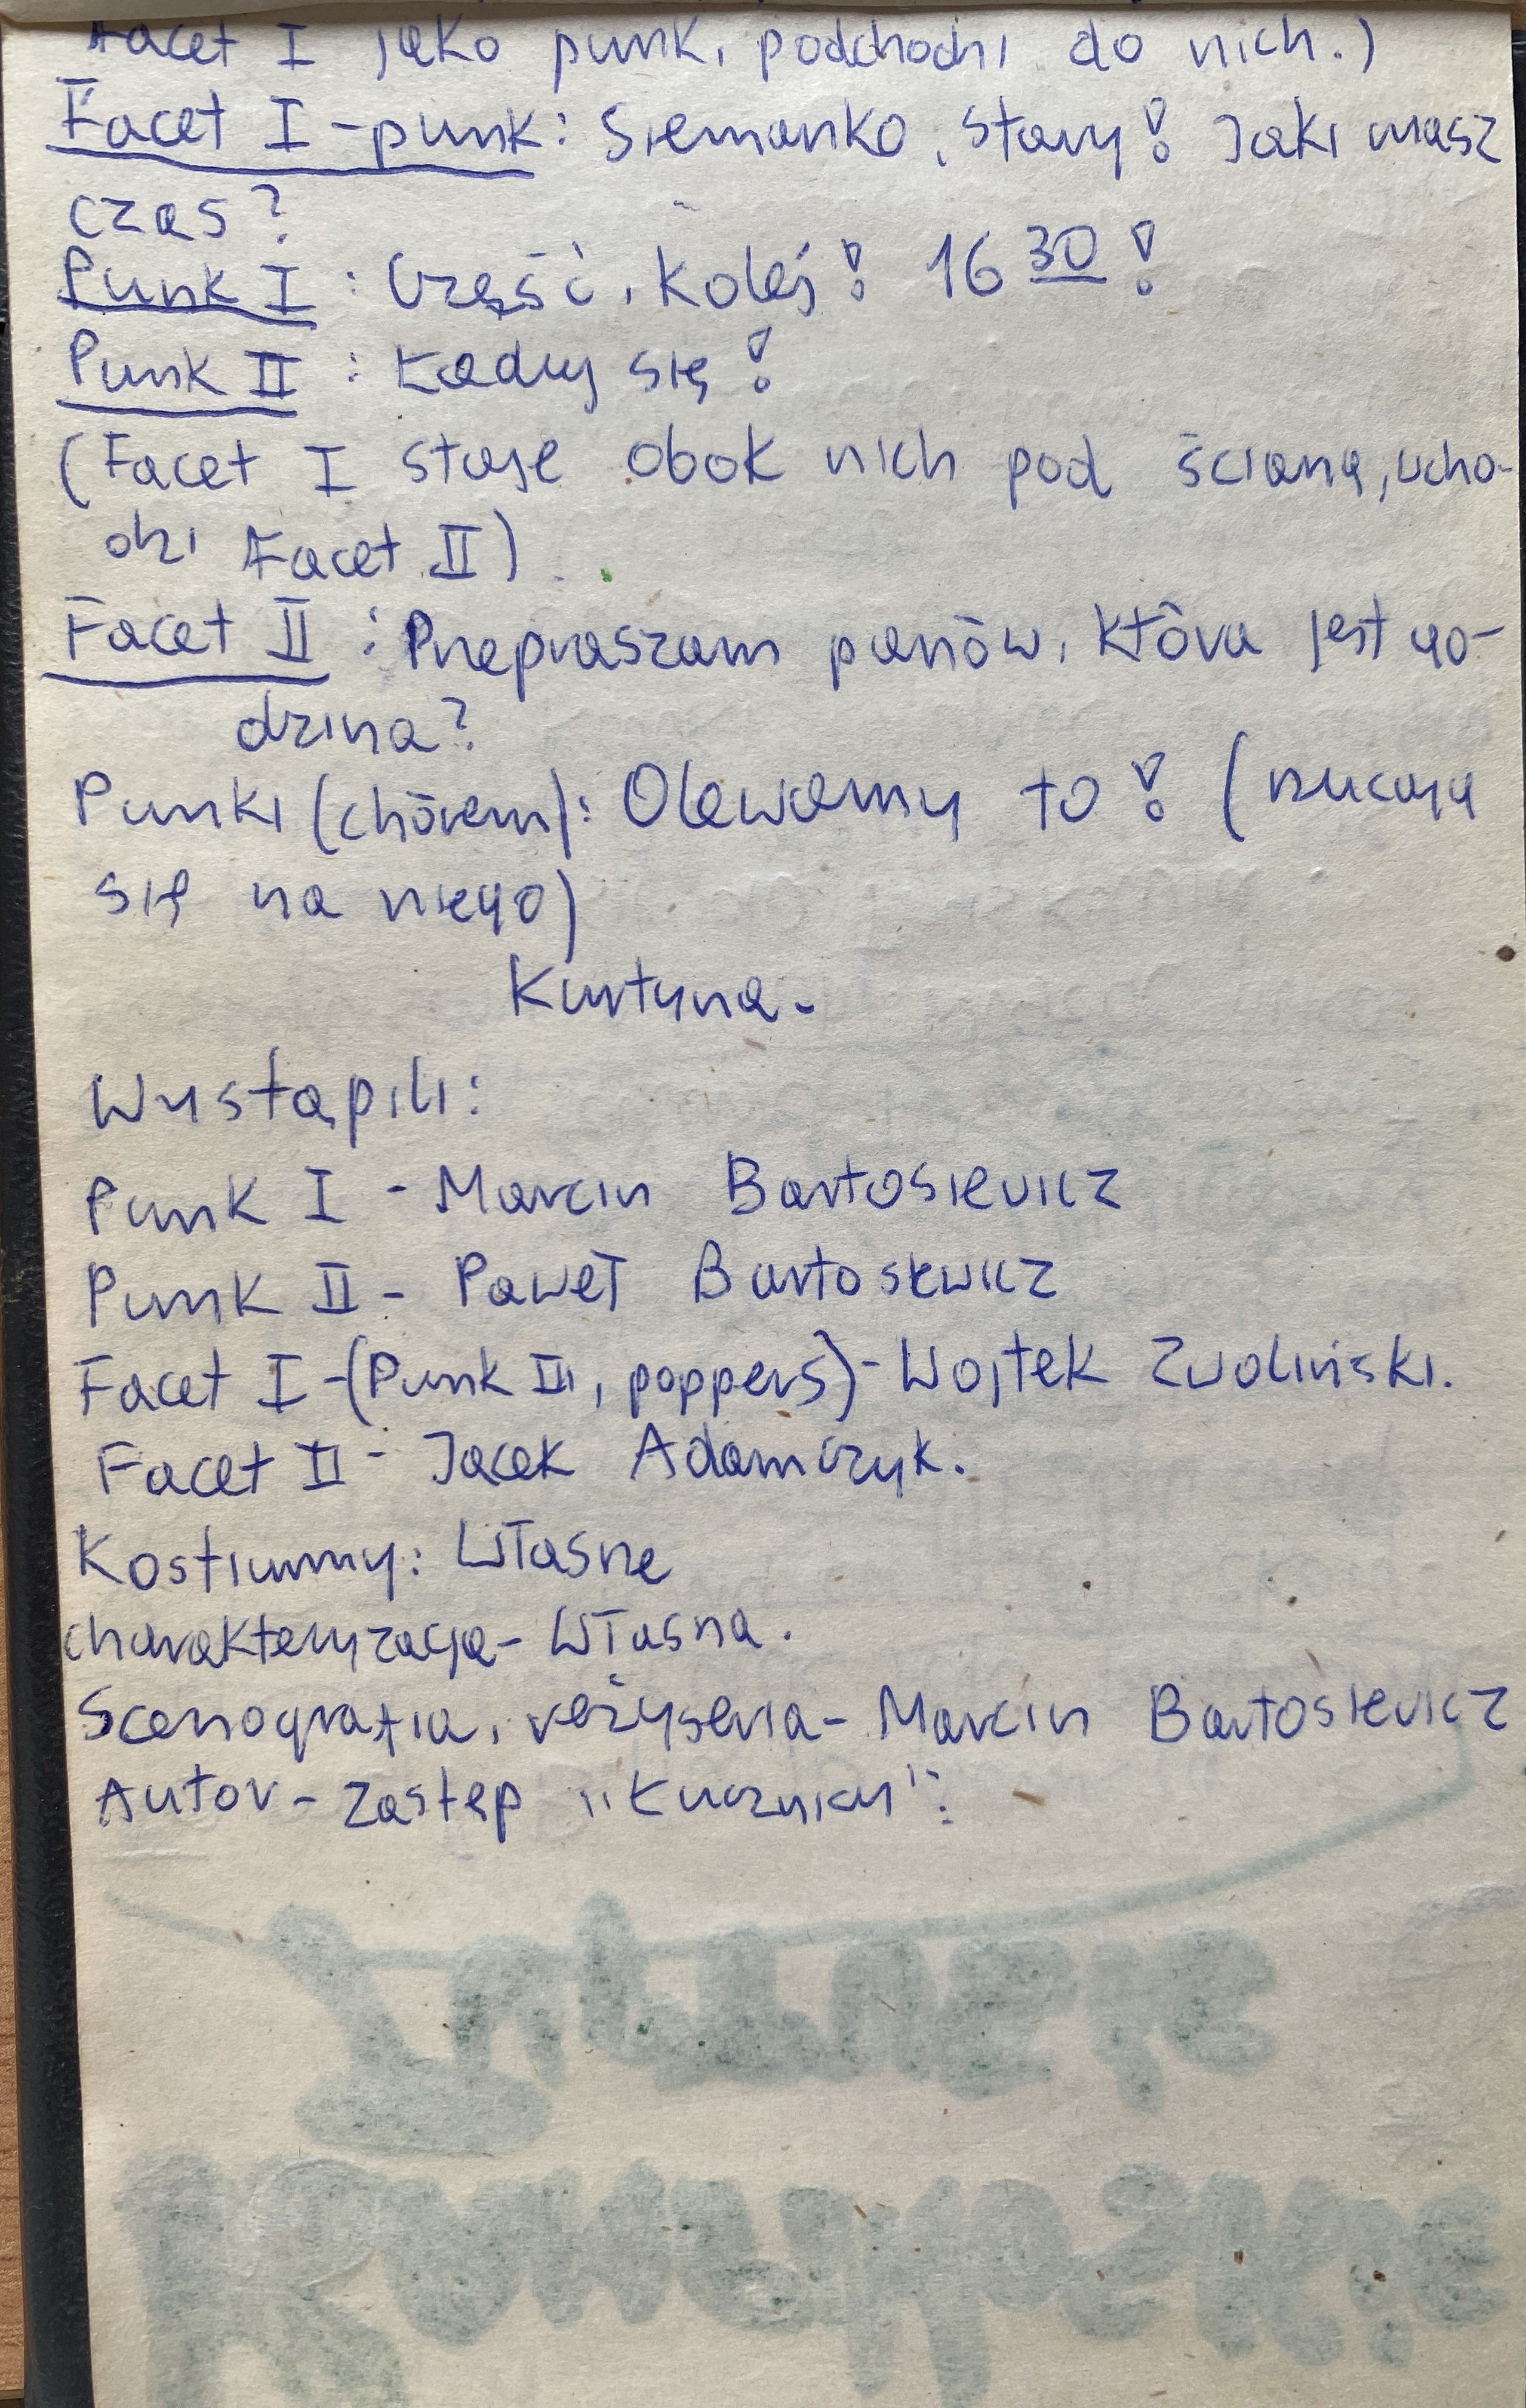 Facet I jako punk, podchodzi do nich.)
Facet I - punk: Siemanko, stary! Jaki masz
czas?
Punk I: Cześć, koleś! 16 30!
Punk II: Ładuj się!
(Facet I staje obok nich pod ścianą, ucho-
dzi Facet II)
Facet II: Przepraszam panów, która jest go-
dzina?
Punki (chórem): Olewamy to! (rzucają
się na niego)
Kurtyna.
Wystąpili:
Punk I - Marcin Bartosievicz
Punk II - Paweł Bartosiewicz
Facet I - (Punk III, poppers) - Wojtek Zwoliński.
Facet II - Jacek Adamczyk.
Kostiumy: Własne
charakteryzacja - Własna.
Scenografia, reżyseria - Marcin Bartosievicz
Autor - Zastęp "Łucznicy":